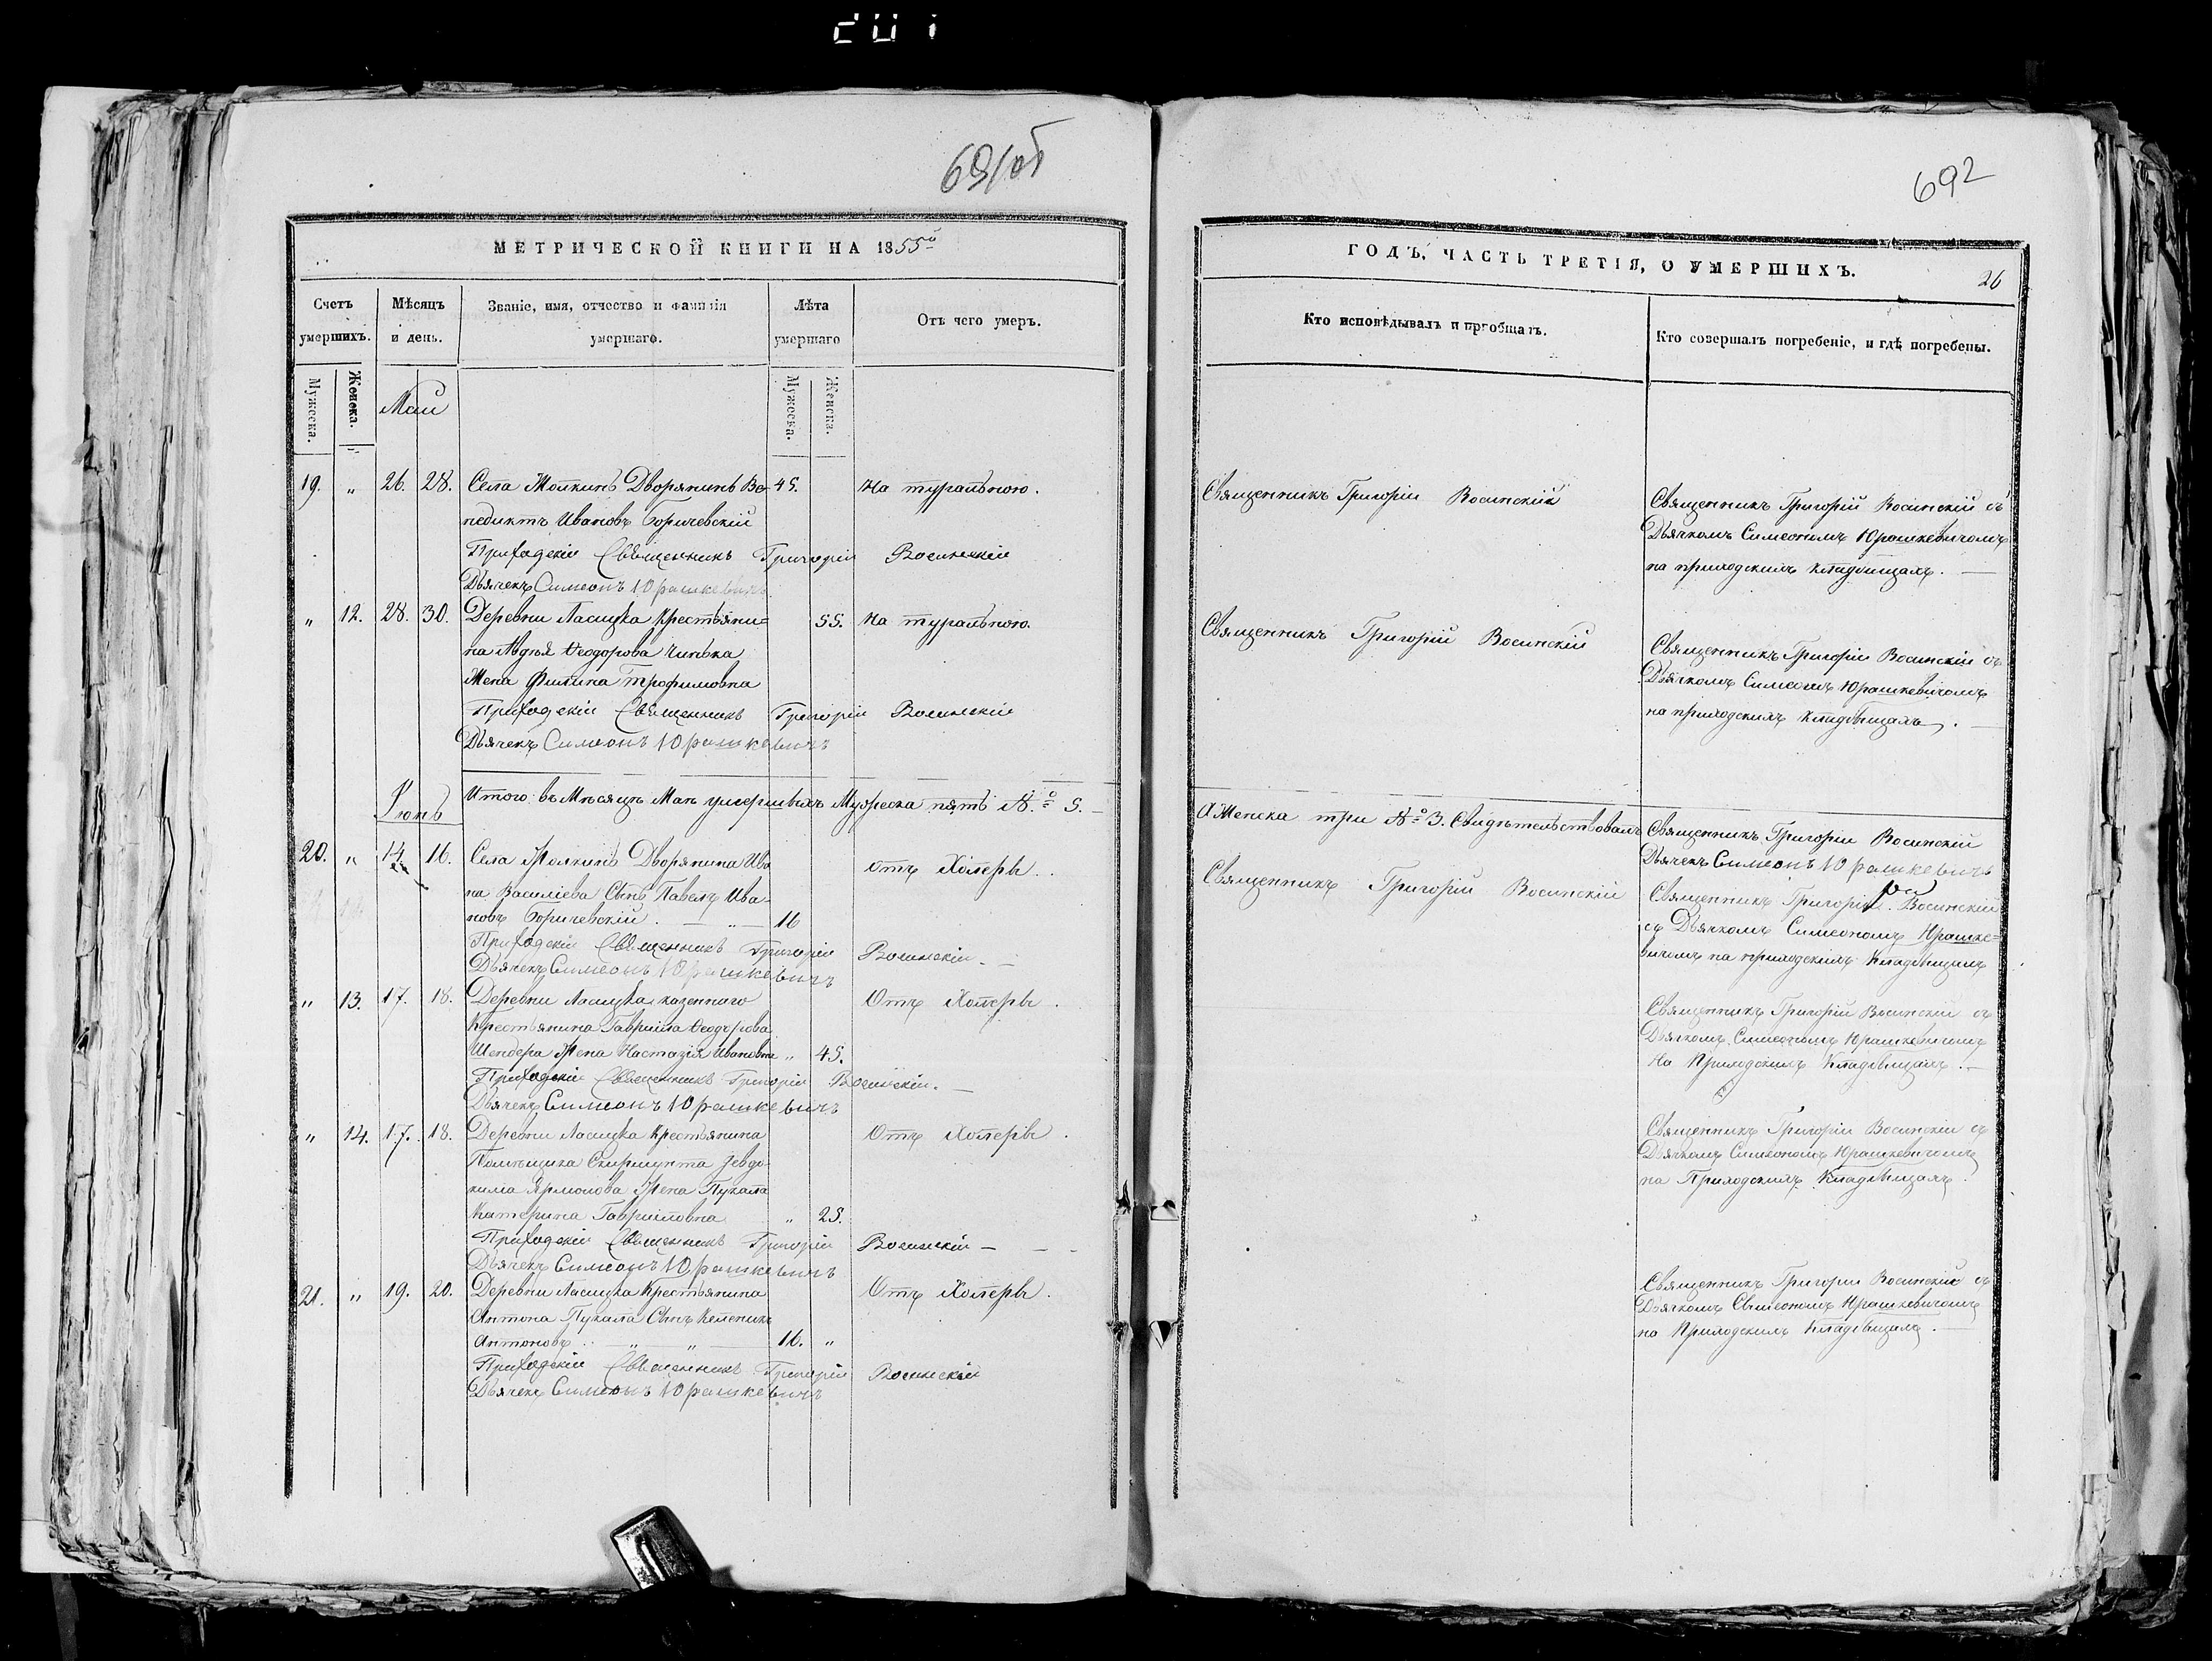 691об
МЕТРИЧЕСКОЙ КНИГИ НА 1855й
Счетъ умершихъ.
Мѣсяцъ и день.
Званіе, имя, отчество и фамилія умершаго.
Лѣта умершаго
Отъ чего умеръ.
Мужеска.
Женска.
Мужеска.
Женска.
Май
19. " 26. 28. Села Молкинъ Дворянинъ Ве- 45. На туральною.
недиктъ Ивановъ Боричевскій
Приходскій Священникъ Григорій Восинскій
Дьячекъ Симеонъ Юрашкевичъ
" 12. 28. 30. Деревни Ласицка Крестьяни= 55. На туральною.
на Авдѣя Ѳеодорова
Жена Трофимовна
Приходскій Священникъ Григорій Восинскій
Дьячекъ Симеонъ Юрашкевичъ
Итого въ Мѣсяцѣ Маѣ умершихъ Мужеска пять №о 5.
Іюнь
20. " 14. 16. Села Молкинъ Дворянина Ива отъ Холеры.
на Василіева Сынъ Павелъ Ива-
новъ Боричевскій. — " — 16
Приходскій Священникъ Григорій Восинскій.
Дьячекъ Симеонъ Юрашкевичъ
" 13. 17. 18. Деревни Ласицка казеннаго Отъ Холеры.
Крестьянина Гавріила Ѳеодорова
Шендера Жена Настазія Ивановна " 45.
Приходскій Священникъ Григорій Восинскій.
Дьячекъ Симеонъ Юрашкевичъ
" 14. 17. 18. Деревни Ласицка Крестьянина Отъ Холеры.
Помѣщика Скирмунта Іевдо-
кима Ярмолова Жена Пукала
Катерина Гавриловна " 25.
Приходскій Священникъ Григорій Восинскій —
Дьячекъ Симеонъ Юрашкевичъ
21. " 19. 20. Деревни Ласицка Крестьянина Отъ Холеры.
Антона Пукала Сынъ
Антоновъ. — " — " — 16. "
Приходскій Священникъ Григорій Восинскій
Дьячекъ Симеонъ Юрашкевичъ
692
ГОДЪ, ЧАСТЬ ТРЕТІЯ, О УМЕРШИХЪ.
26
Кто исповѣдывалъ и пріобщалъ.
Кто совершалъ погребеніе, и гдѣ погребены.
Священникъ Григорій Восинскій
Священникъ Григорій Восинскій съ
Дьячкомъ Симеономъ Юрашкевичомъ
на приходскихъ кладбищахъ. —
Священникъ Григорій Восинскій
Священникъ Григорій Восинскій съ
Дьячкомъ Симеономъ Юрашкевичомъ
на приходскихъ кладбищахъ. —
А Женска три №о 3. Свидѣтельствовалъ Священникъ Григорій Восинскій
Дьячекъ Симеонъ Юрашкевичъ
Священникъ Григорій Восинскій
Священникъ Григорій Восинскій
съ Дьячкомъ Симеономъ Юрашке=
вичомъ на приходскихъ Кладбищахъ
Священникъ Григорій Восинскій съ
Дьячкомъ Симеономъ Юрашкевичомъ
На Приходскихъ Кладбищахъ. —
Священникъ Григорій Восинскій съ
Дьячкомъ Симеономъ Юрашкевичомъ
на Приходскихъ Кладбищахъ.
Священникъ Григорій Восинскій съ
Дьячкомъ Симеономъ Юрашкевичомъ
на Приходскихъ Кладбищахъ. —